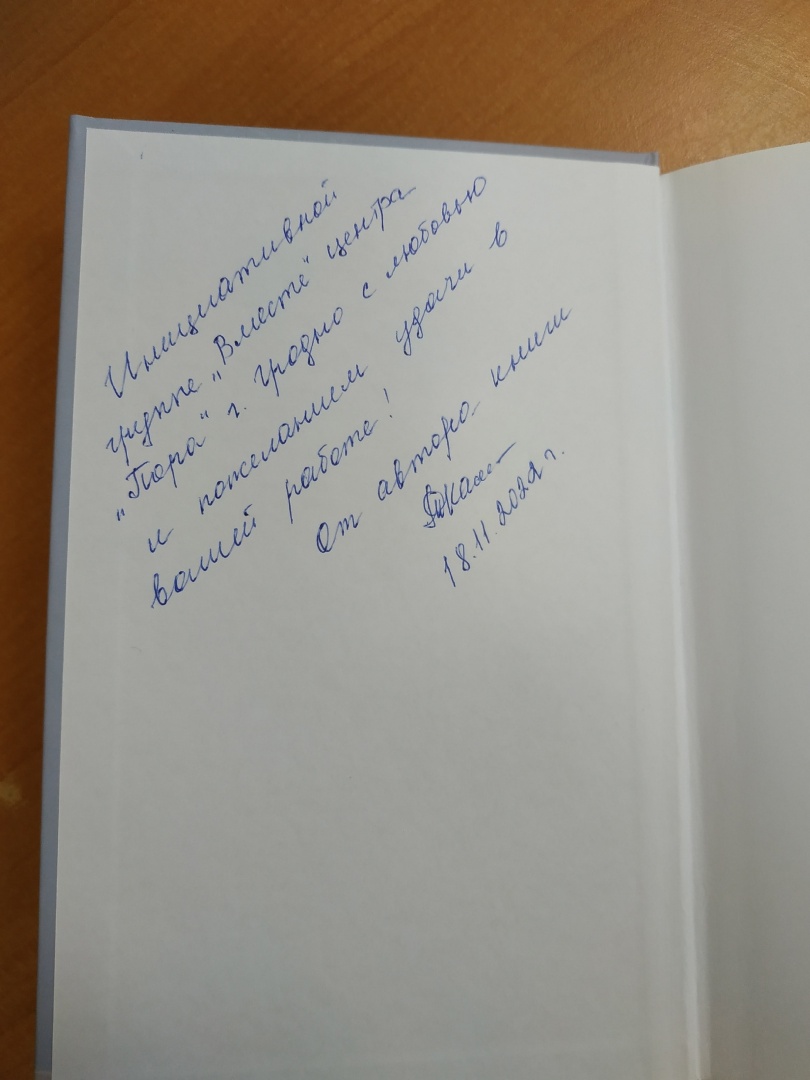 Инициативной
группе „Вместе" центра
„Пора" г. Гродно с любовью
и пожеланием удачи в
вашей работе!
От автора книги
18.11.2022 г.